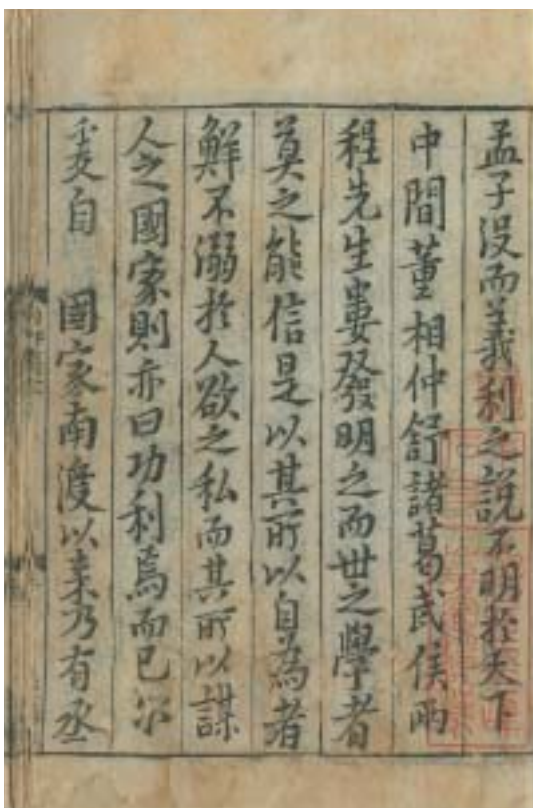 孟子没而義利之說不明於天下
中間董相仲舒諸葛武侯兩
程先生屢發明之而世之學者
莫之能信是以其所以自為者
鮮不溺於人欲之私而其所以謀
人之國家則亦曰功利焉而已尔
爰自 國家南渡以来乃有丞